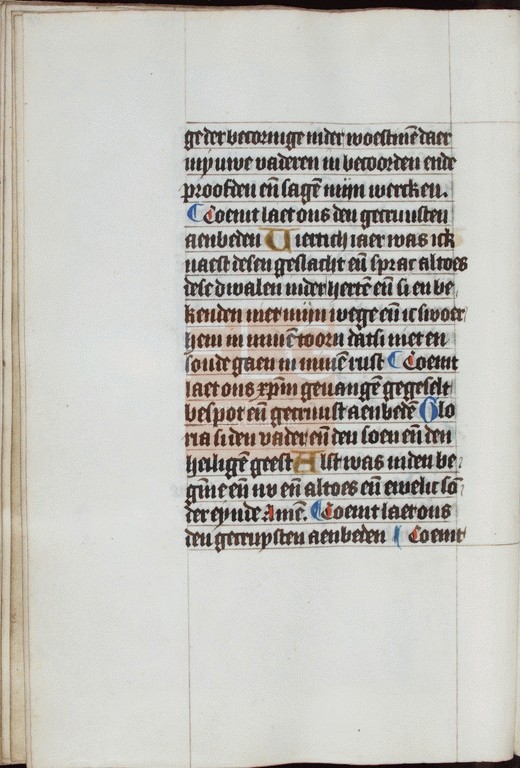 ge der becoringe inder woestinē daer
my uwe vaderen in becoorden ende
proofden eñ sagē mijn wercken.
Coemt laet ons den gecruusten
aenbeden Viertich iaer was ick
naest desen geslacht eñ sprac altoes
dese dwalen inder hertē eñ si en be
kenden niet mijn wege eñ ic swoer
hem in minē toorn dat si niet en
soude gaen in minē rust Coemt
laet ons xp̄m geuangē gegeselt
bespot eñ gecruust aenbedē Glo
ria si den vader eñ den soen eñ den
heiligē geest Alst was inden be
gīne eñ nv eñ altoes eñ ewelic sō
der eynde Amē. Coemt laet ons
den gecruysten aenbeden Coemt